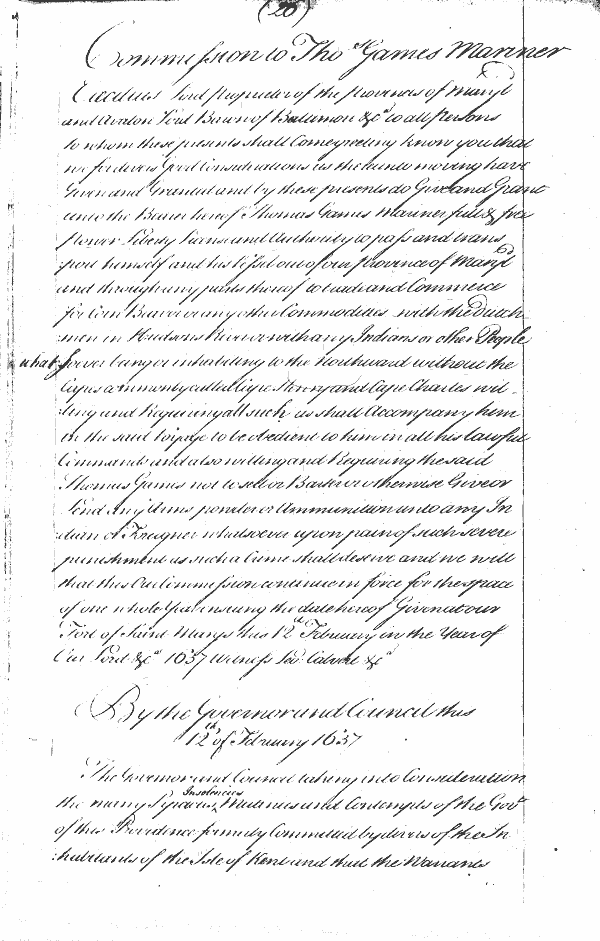 (20)
Commission to Tho.s Games Mariner
Cecilius Lord Proprietor of the provinces of Maryld
and Avalon Lord Baron of Baltimore &ca to all Persons
to whom these presents shall Come greeting know you that
we for divers Good Considerations us thereunto moving have
Given and Granted and by these presents do Give and Grant
unto the Bearer hereof Thomas Games Mariner full & free
power Liberty License and Authority to pass and trans
port himself and his Vessel out of our province of Maryld
and through any parts thereof to trade and Commerce
for Corn Beaver or any other Commodities with the Dutch
men in Hudsons River or with any Indians or other People
whatsoever being or inhabiting to the Northward without the
Capes commonly called Cape Henry and Cape Charles wil
ling and Requiring all such as shall Accompany him
in the said Voyage to be obedient to him in all his lawful
Commands and also willing and Requiring the said
Thomas Games not to sell or Barter or otherwise Give or
Lend any Arms powder or Ammunition unto any In
dian or Foreigner whatsoever upon pain of such severe
punishment as such a Crime shall deserve and we will
that this Our Commission continue in force for the space
of one whole Year ensuing the date hereof Given at our
Fort of Saint Marys this 12th February in the Year of
Our Lord &ca 1637 Witness Leo: Calvert &ca
By the Governor and Council this
12th of February 1637
The Governor and Council taking into Consideration
the many Pyracies, Insolencies Mutinies and Contempts of the Govt
of this Providence formerly Committed by divers of the In
habitants of the Isle of Kent and that the Warrants